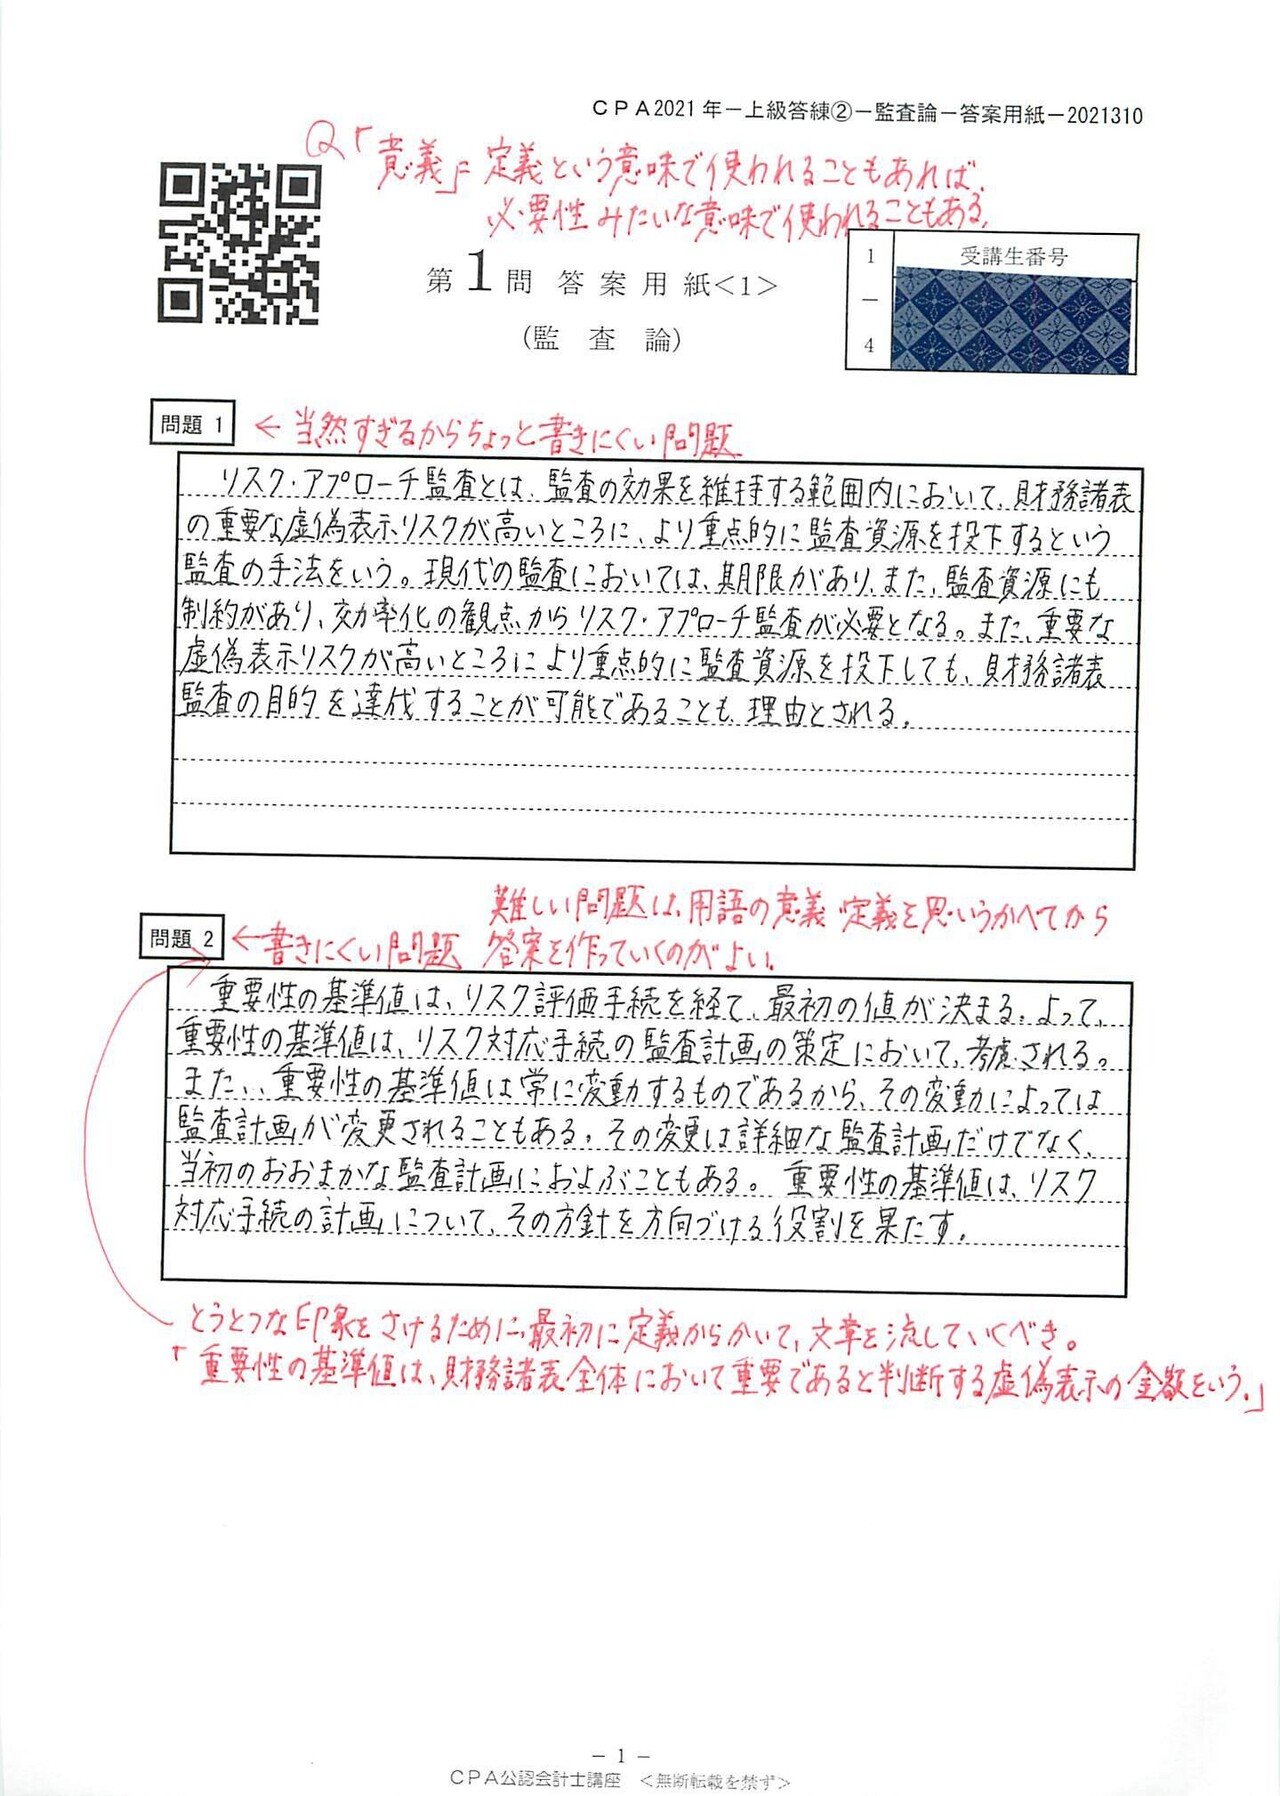 CPA2021年－上級答練②－監査論－答案用紙－2021310
Q「意義」= 定義という意味で使われることもあれば、
必要性みたいな意味で使われることもある。
第1問 答案用紙<1>
(監査論)
1－4
受講生番号
問題 1
← 当然すぎるからちょっと書きにくい問題
リスク・アプローチ監査とは、監査の効果を維持する範囲内において、財務諸表
の重要な虚偽表示リスクが高いところに、より重点的に監査資源を投下するという
監査の手法をいう。現代の監査においては、期限があり、また、監査資源にも
制約があり、効率化の観点からリスク・アプローチ監査が必要となる。また、重要な
虚偽表示リスクが高いところにより重点的に監査資源を投下しても、財務諸表
監査の目的を達成することが可能であることも理由とされる。
難しい問題は、用語の意義・定義を思いうかべてから
答案を作っていくのがよい。
問題 2
← 書きにくい問題
重要性の基準値は、リスク評価手続を経て、最初の値が決まる。よって、
重要性の基準値は、リスク対応手続の監査計画の策定において、考慮される。
また、、重要性の基準値は常に変動するものであるから、その変動によっては
監査計画が変更されることもある。その変更は詳細な監査計画だけでなく、
当初のおおまかな監査計画におよぶこともある。重要性の基準値は、リスク
対応手続の計画について、その方針を方向づける役割を果たす。
とうとつな印象をさけるために、最初に定義からかいて、文章を流していくべき。
「重要性の基準値は、財務諸表全体において重要であると判断する虚偽表示の金額をいう。」
－ 1 －
CPA公認会計士講座 <無断転載を禁ず>